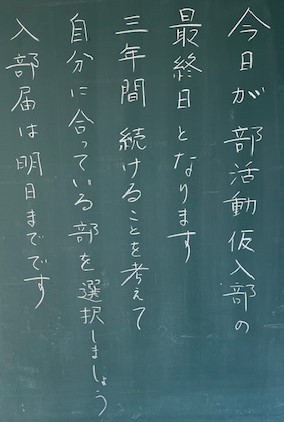 今日が部活動仮入部の
最終日となります
三年間続けることを考えて
自分に合っている部を選択しましょう
入部届は明日までです